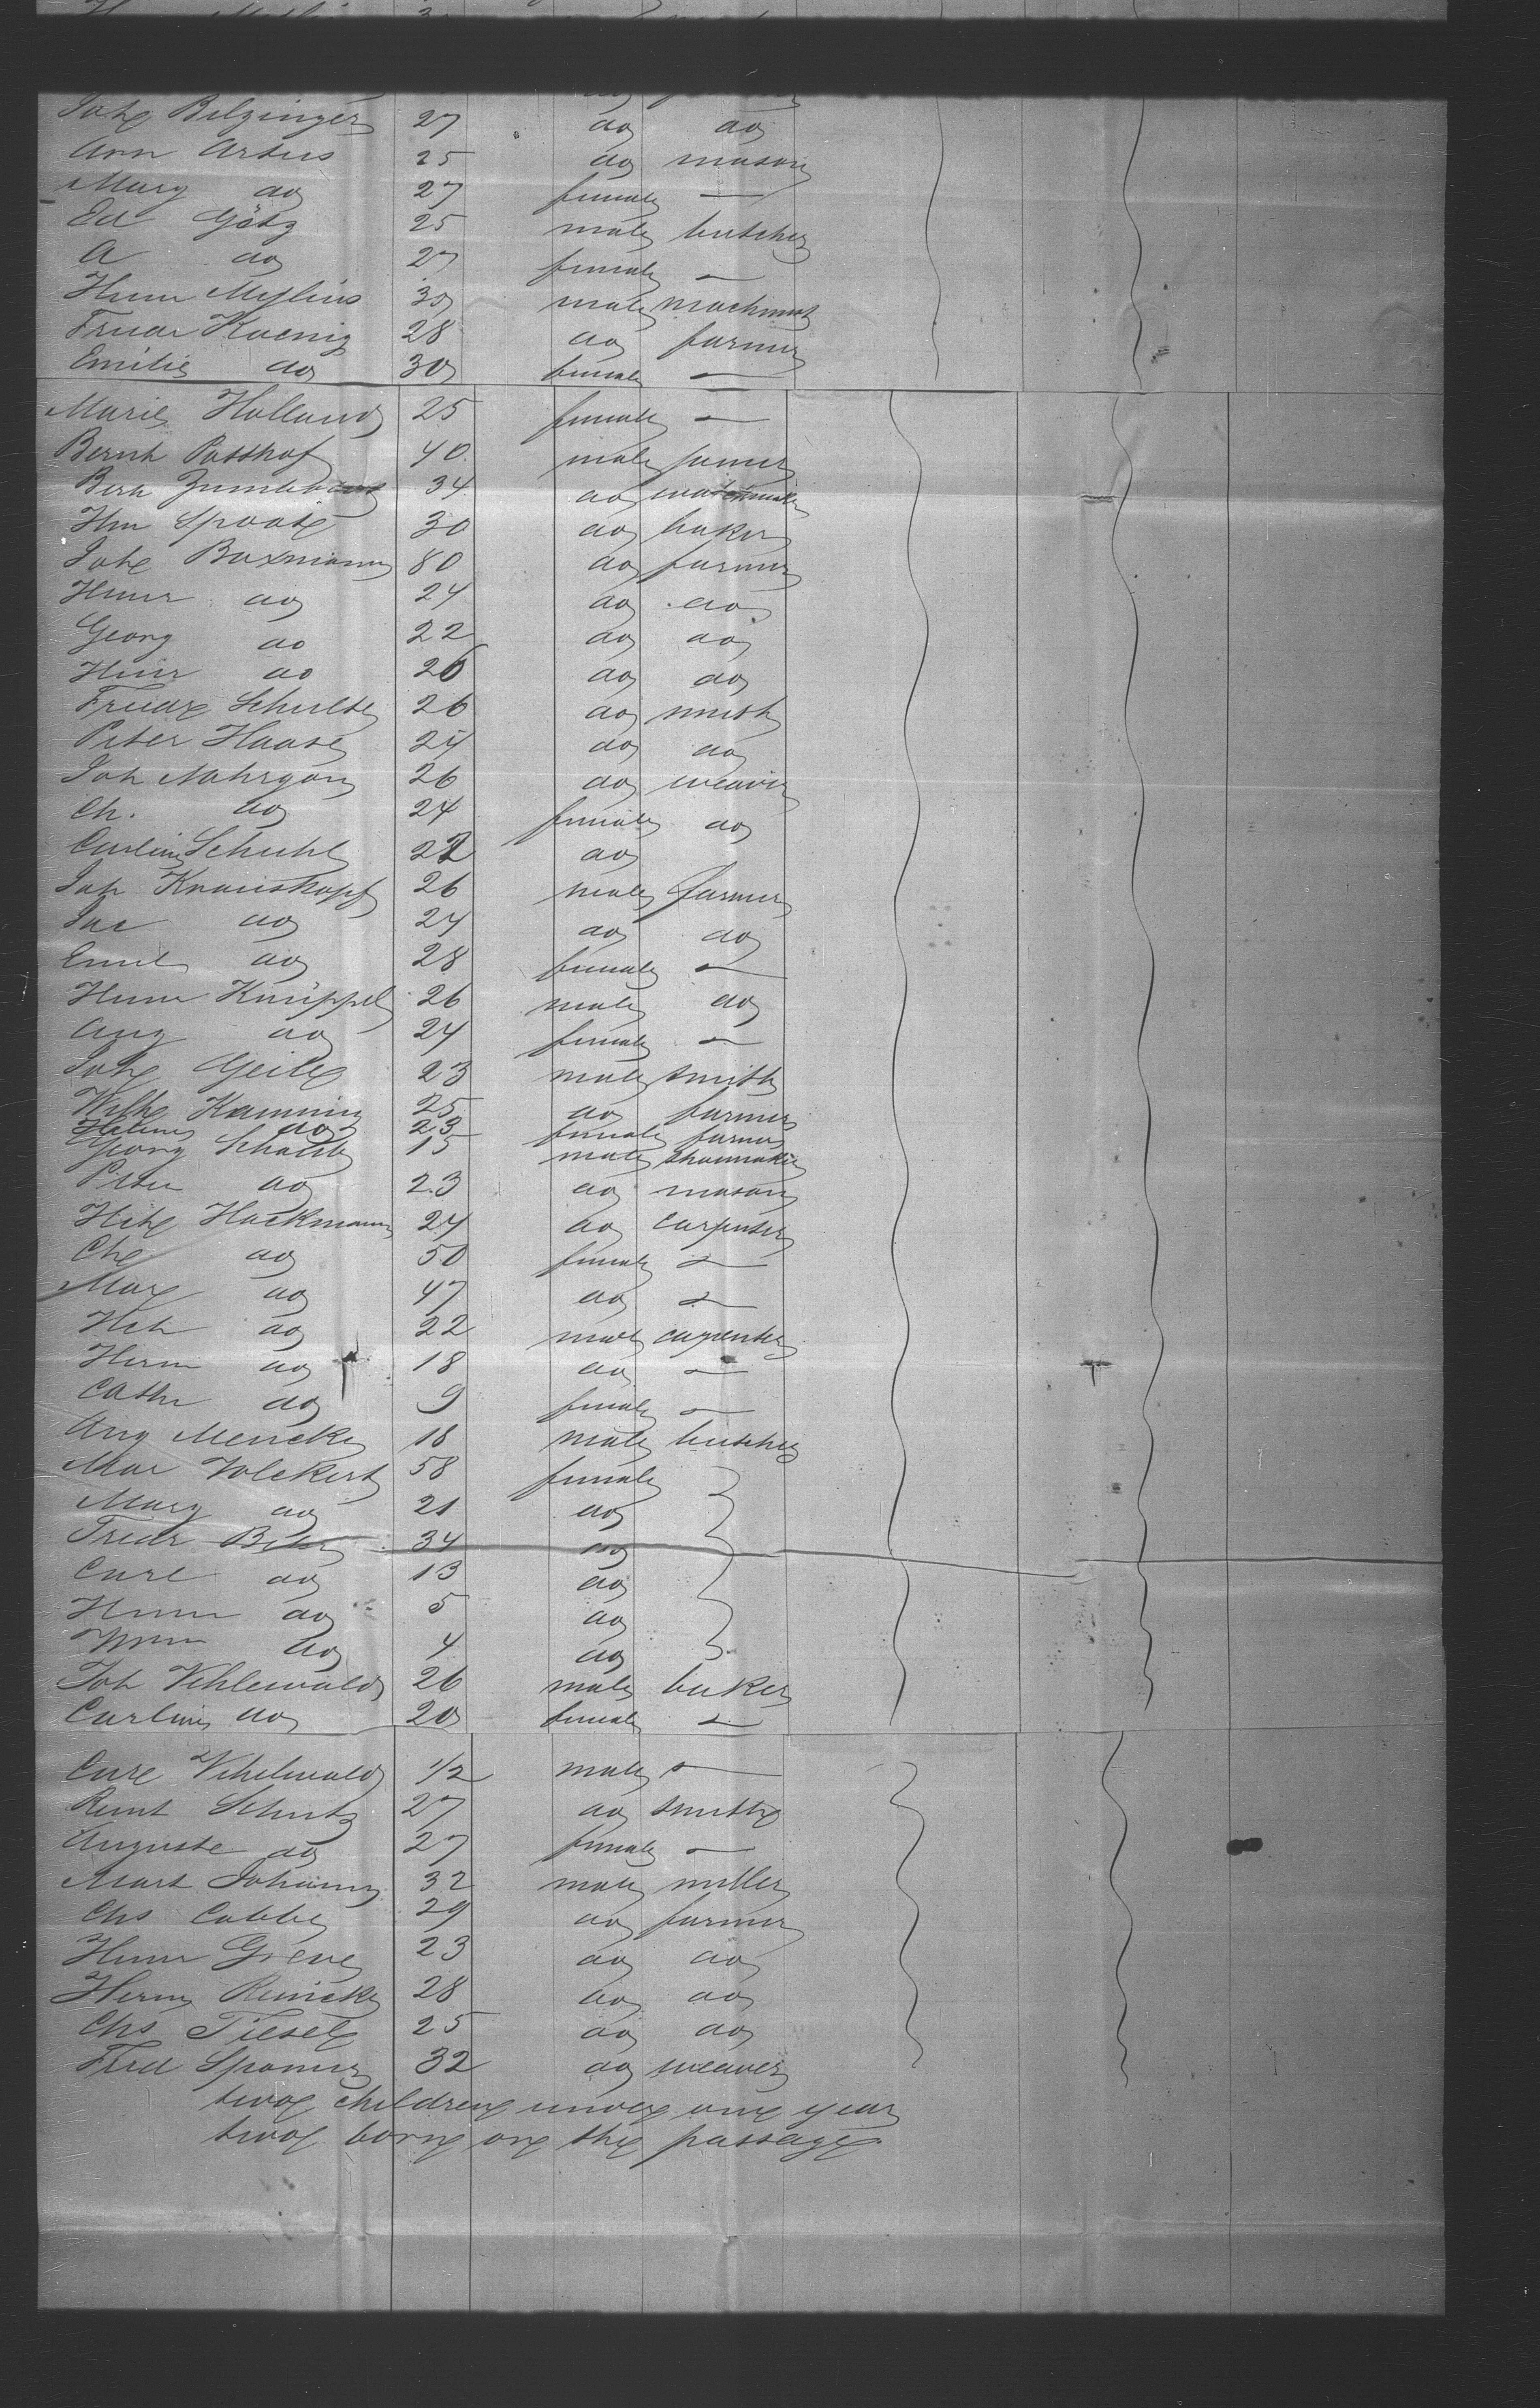 Joh Bilzinger 27 do do
Ann Artus 25 do mason
Marg do 27 female —
Ed Götz 25 male butcher
A do 27 female —
Herm Mylius 30 male machinist
Friedr Koenig 28 do farmer
Emilie do 30 female —
Marie Holland 25 female —
Bernh Posthof 40 male farmer
Bern 34 do watchmaker
Hm Spoote 30 do baker
Joh Boxmann 80 do farmer
Heinr do 24 do do
Georg do 22 do do
Heinr do 26 do do
Friedr Schulte 26 do smith
Peter Haase 24 do do
Joh Mohrgang 26 do weaver
Ch. do 24 female do
Carline Schuhl 22 do
Joh Knauskopf 26 male farmer
Jac do 24 do do
Emil do 28 female —
Herm Knüppel 26 male do
Aug do 24 female —
Joh Geile 23 male smith
Wilh Kamming 25 do farmer
Helene do 23 female farmer
Georg Schatste 15 male shoemaker
Peter do 23 do mason
Hch Hackmann 24 do carpenter
Che do 50 female —
Mar do 47 do —
Hch do 22 male carpenter
Herm do 18 do —
Cathr do 9 female —
Aug Mencke 18 male butcher
Mar Volckert 58 female
Marg do 21 do
Friedr 34 do
Carl do 13 do
Herm do 5 do
do 4 do
Joh Vehlewald 26 male baker
Carline do 20 female —
Carl Vehlewald 1/2 male —
Reint Schutz 27 do smith
Auguste do 27 female —
Mart Johann 32 male miller
Chs Cobbe 29 do farmer
Herm Greve 23 do do
Herm Reinicke 28 do do
Chs Tiesel 25 do do
Ferd Sponner 32 do weaver
two children under one year
two born on the passage